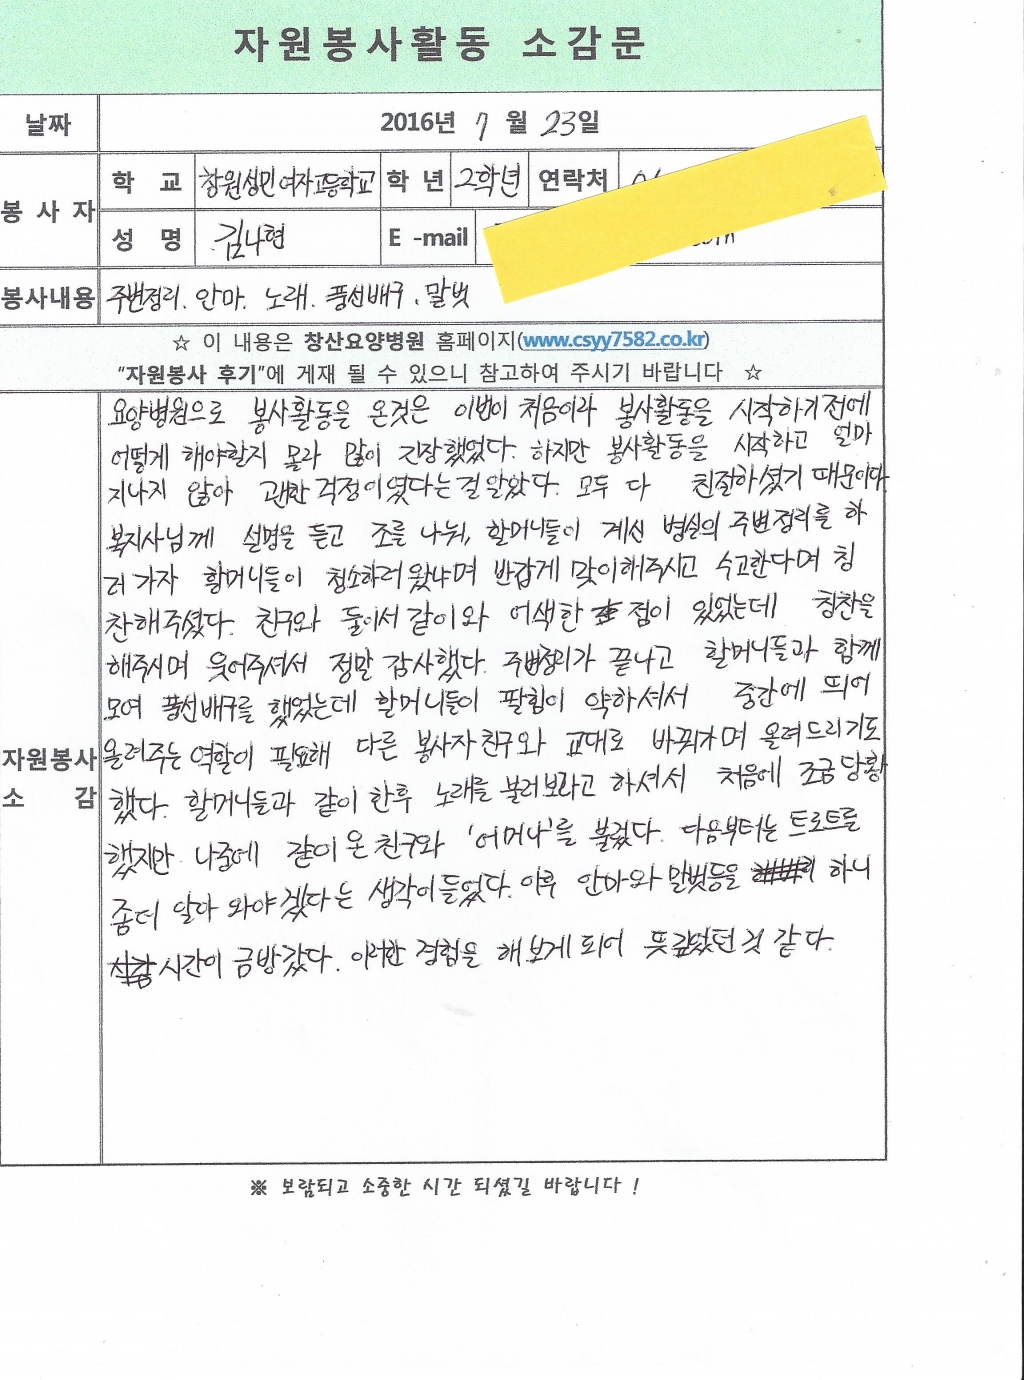 자원봉사활동 소감문
날짜 2016년 7 월 23일
봉사자 학 교 창원성민여자고등학교 학 년 2학년 연락처
성 명 김나현 E -mail
봉사내용 주변정리. 안마. 노래. 풍선배구. 말벗
☆ 이 내용은 창산요양병원 홈페이지(www.csyy7582.co.kr)
"자원봉사 후기"에 게재 될 수 있으니 참고하여 주시기 바랍니다 ☆
자원봉사 소 감
요양병원으로 봉사활동을 온것은 이번이 처음이라 봉사활동을 시작하기전에
어떻게 해야할지 몰라 많이 긴장했었다. 하지만 봉사활동을 시작하고 얼마
지나지 않아 괜한 걱정이였다는걸 알았다. 모두 다 친절하셨기 때문이다.
복지사님께 설명을 듣고 조를 나눠, 할머니들이 계신 병실의 주변정리를 하
러 가자 할머니들이 청소하러 왔냐며 반갑게 맞이해주시고 수고한다며 칭
찬해주셨다. 친구와 둘이서 같이와 어색한 점이 있었는데 칭찬을
해주시며 웃어주셔서 정말 감사했다. 주변정리가 끝나고 할머니들과 함께
모여 풍선배구를 했었는데 할머니들이 팔힘이 약하셔서 중간에 띄어
올려주는 역할이 필요해 다른 봉사자친구와 교대로 바꿔가며 올려드리기도
했다. 할머니들과 같이 한후 노래를 불러보라고 하셔서 처음에 조금 당황
했지만 나중에 같이 온 친구와 '어머나'를 불렀다. 다음부터는 트로트를
좀더 알아 와야겠다는 생각이 들었다. 이후 안마와 말벗등을 하니
시간이 금방갔다. 이러한 경험을 해보게 되어 뜻깊었던 것 같다.
※ 보람되고 소중한 시간 되셨길 바랍니다 !